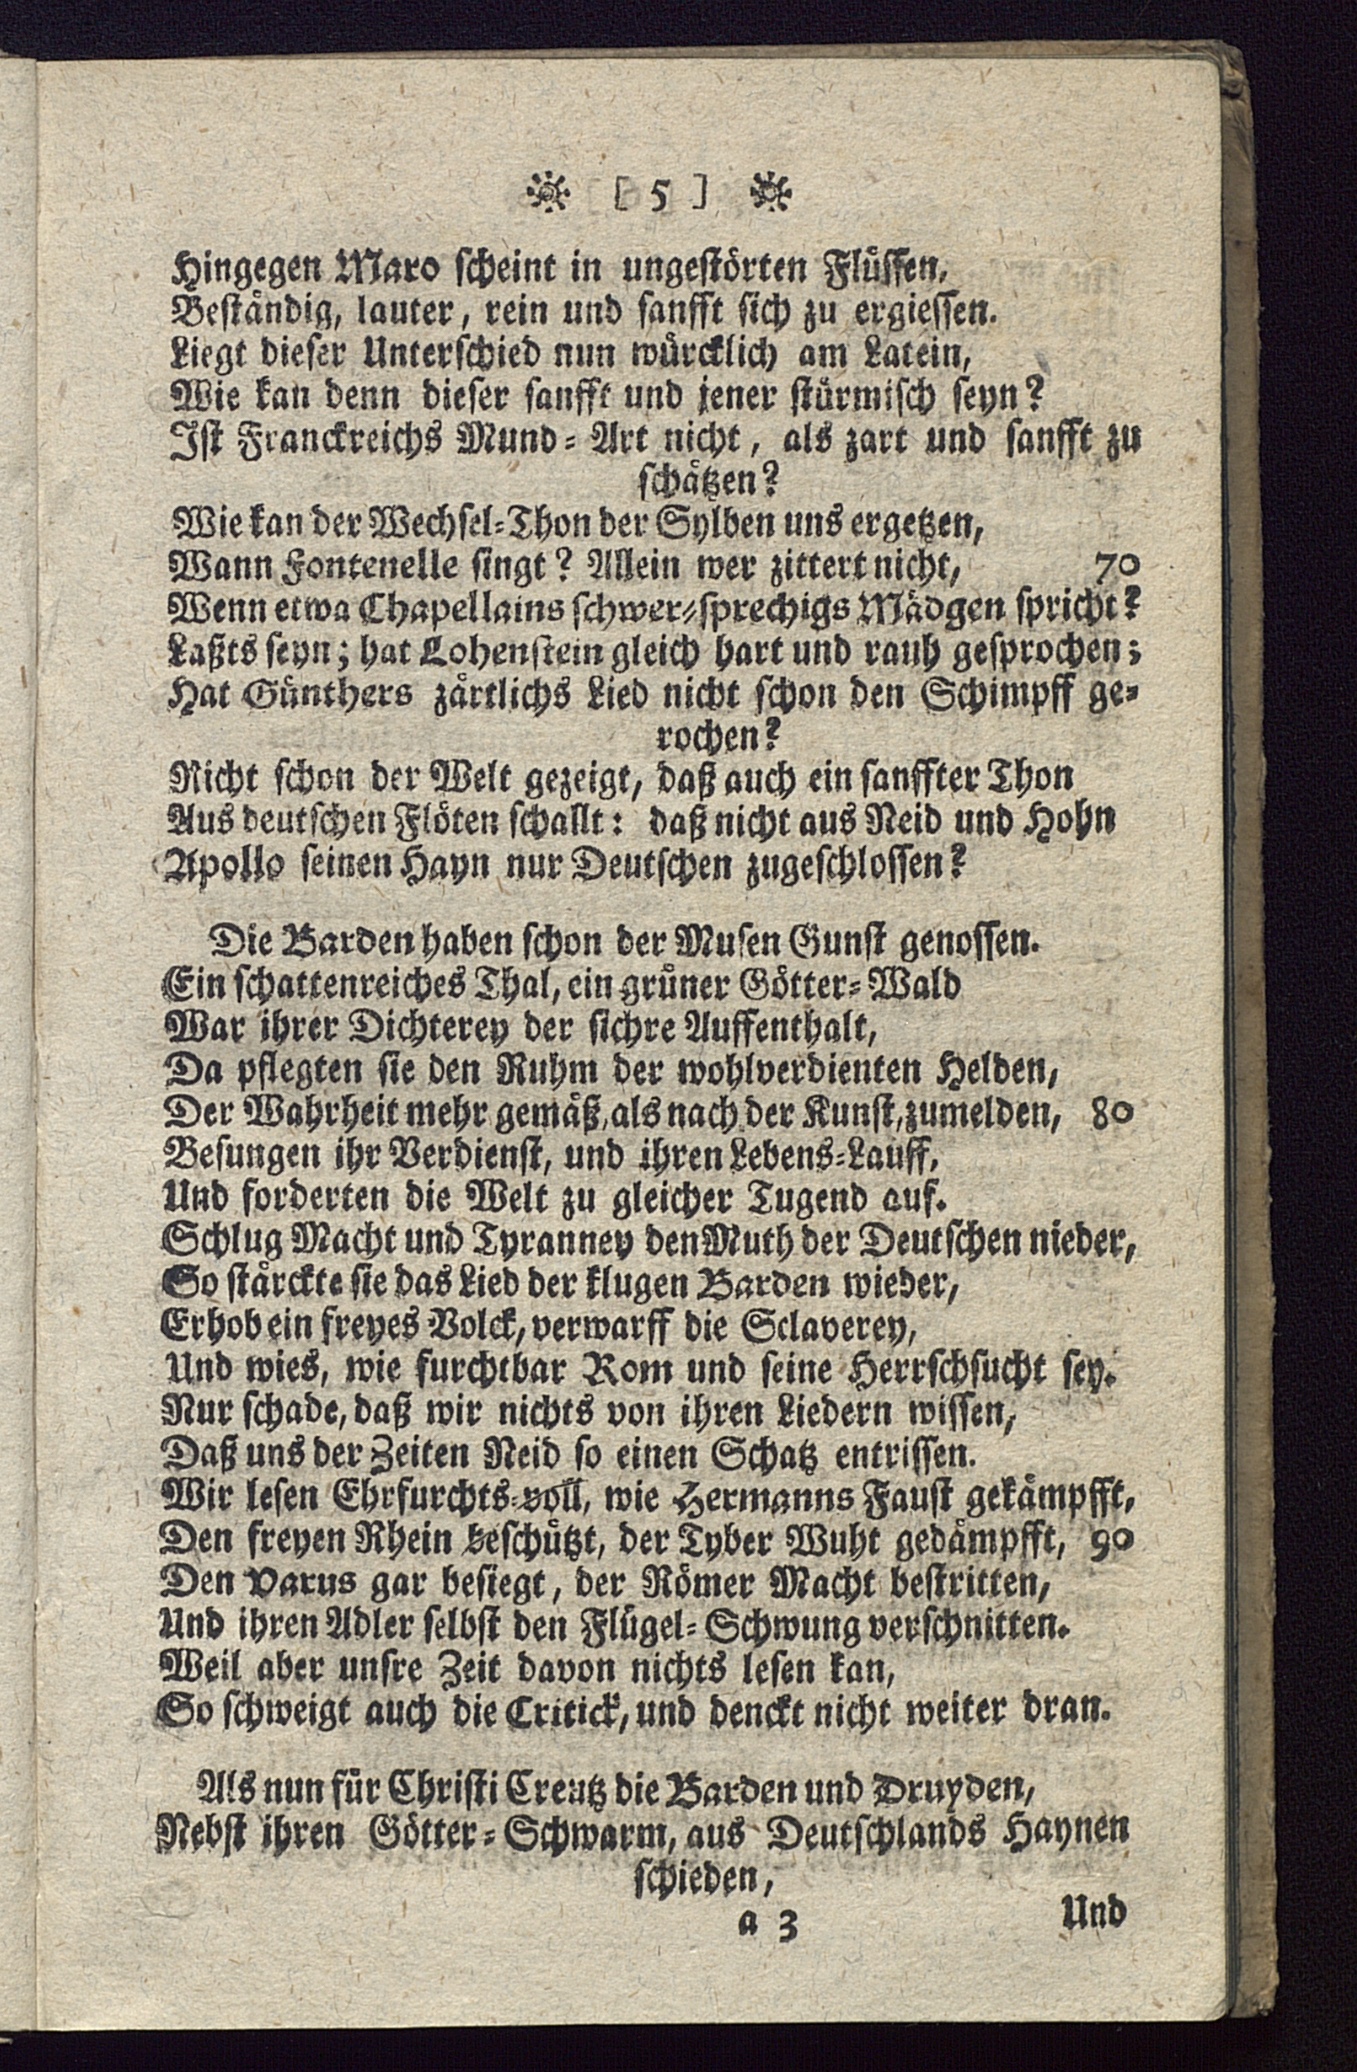 [ 5 ]
Hingegen Maro scheint in ungestörten Flüssen,
Beständig, lauter, rein und sanfft sich zu ergiessen.
Liegt dieser Unterschied nun würcklich am Latein,
Wie kan denn dieser sanfft und jener stürmisch seyn?
Ist Franckreichs Mund-Art nicht, als zart und sanfft zu
schätzen?
Wie kan der Wechsel-Thon der Sylben uns ergetzen,
Wann Fontenelle singt? Allein wer zittert nicht, 70
Wenn etwa Chapellains schwer-sprechigs Mädgen spricht?
Laßts seyn; hat Lohenstein gleich hart und rauh gesprochen;
Hat Günthers zärtlichs Lied nicht schon den Schimpff ge-
rochen?
Nicht schon der Welt gezeigt, daß auch ein sanffter Thon
Aus deutschen Flöten schallt: daß nicht aus Neid und Hohn
Apollo seinen Hayn nur Deutschen zugeschlossen?
Die Barden haben schon der Musen Gunst genossen.
Ein schattenreiches Thal, ein grüner Götter-Wald
War ihrer Dichterey der sichre Auffenthalt,
Da pflegten sie den Ruhm der wohlverdienten Helden,
Der Wahrheit mehr gemäß, als nach der Kunst, zumelden, 80
Besungen ihr Verdienst, und ihren Lebens-Lauff,
Und forderten die Welt zu gleicher Tugend auf.
Schlug Macht und Tyranney den Muth der Deutschen nieder,
So stärckte sie das Lied der klugen Barden wieder,
Erhob ein freyes Volck, verwarff die Sclaverey,
Und wies, wie furchtbar Rom und seine Herrschsucht sey.
Nur schade, daß wir nichts von ihren Liedern wissen,
Daß uns der Zeiten Neid so einen Schatz entrissen.
Wir lesen Ehrfurchts-voll, wie Hermanns Faust gekämpfft,
Den freyen Rhein beschützt, der Tyber Wuht gedämpfft, 90
Den Varus gar besiegt, der Römer Macht bestritten,
Und ihren Adler selbst den Flügel-Schwung verschnitten.
Weil aber unsre Zeit davon nichts lesen kan,
So schweigt auch die Critick, und denckt nicht weiter dran.
Als nun für Christi Creutz die Barden und Druyden,
Nebst ihren Götter-Schwarm, aus Deutschlands Haynen
schieden,
a 3 Und